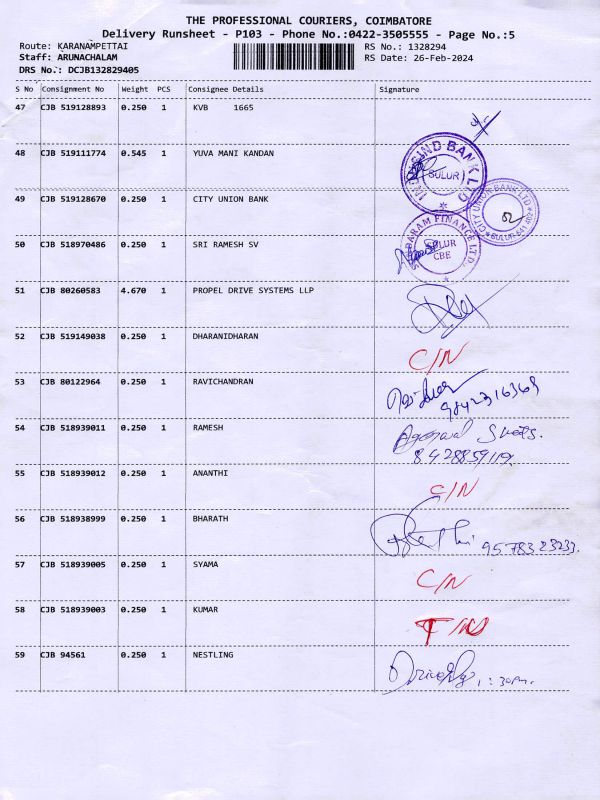 THE PROFESSIONAL COURIERS, COIMBATORE
Delivery Runsheet - P103 - Phone No.:0422-3505555 - Page No.:5
Route: KARANAMPETTAI RS No.: 1328294
Staff: ARUNACHALAM RS Date: 26-Feb-2024
DRS No.: DCJB132829405
S No Consignment No Weight PCS Consignee Details Signature
47 CJB 519128893 0.250 1 KVB 1665
48 CJB 519111774 0.545 1 YUVA MANI KANDAN
INDUSIND BANK LTD
SULUR
49 CJB 519128670 0.250 1 CITY UNION BANK
CITY UNION BANK LTD
SULUR 641 402
50 CJB 518970486 0.250 1 SRI RAMESH SV
FINANCE LTD
SULUR
CBE
51 CJB 80260583 4.670 1 PROPEL DRIVE SYSTEMS LLP
52 CJB 519149038 0.250 1 DHARANIDHARAN
C/N
53 CJB 80122964 0.250 1 RAVICHANDRAN
9842316368
54 CJB 518939011 0.250 1 RAMESH
Agarwal Sweets.
8428859119.
55 CJB 518939012 0.250 1 ANANTHI
C/N
56 CJB 518938999 0.250 1 BHARATH
9578323233.
57 CJB 518939005 0.250 1 SYAMA
C/N
58 CJB 518939003 0.250 1 KUMAR
59 CJB 94561 0.250 1 NESTLING
1:30pm.